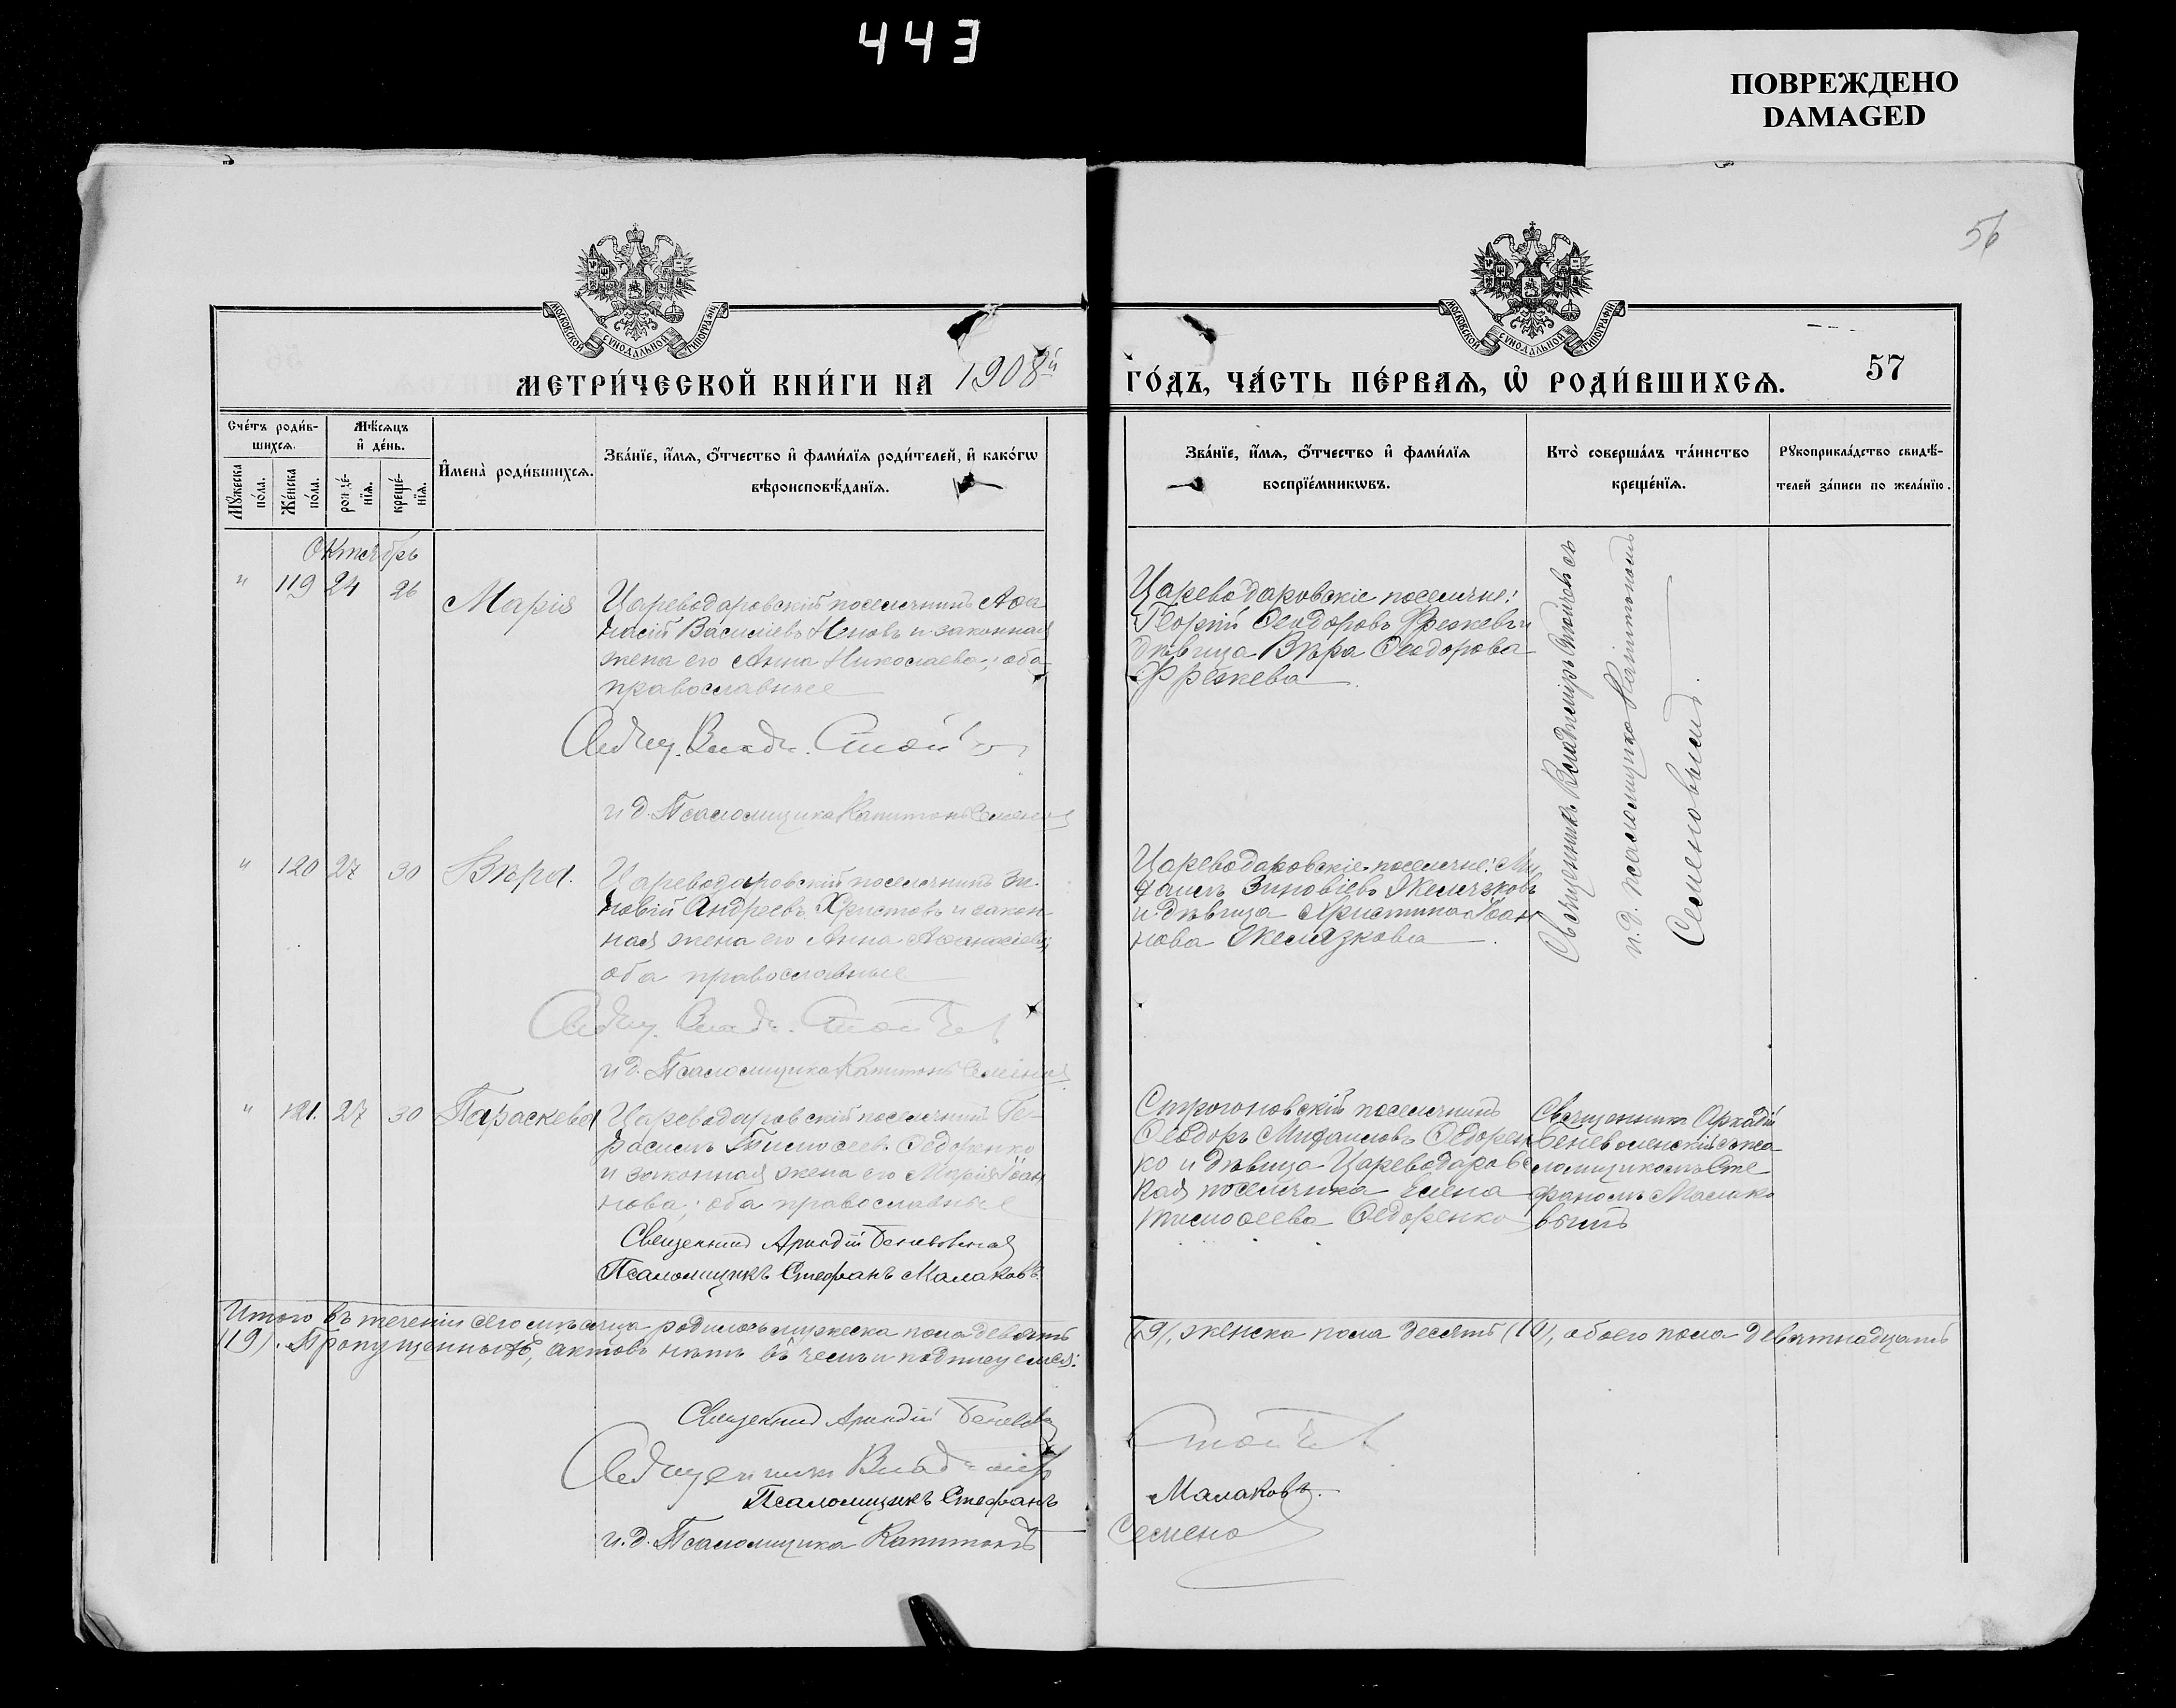 443
ПОВРЕЖДЕНО
DAMAGED
56
МОСКОВСКОЙ СУНОДАЛЬНОЙ ТИПОГРАФІИ
МОСКОВСКОЙ СУНОДАЛЬНОЙ ТИПОГРАФІИ
МЕТРИ́ЧЕСКОЙ КНИ́ГИ НА 1908й
ГО́ДЪ, ЧА́СТЬ ПЕ́РВАѦ, Ѡ҆ РОДИ́ВШИХСѦ.
57
Сче́тъ роди́в-
шихсѧ.
Мѣ́сѧцъ
и҆ де́нь.
Мꙋ́жеска
по́ла.
Же́нска
по́ла.
рожде́-
нїѧ.
креще́-
нїѧ.
И҆мена̀ роди́вшихсѧ.
Зва́нїе, и҆́мѧ, ѻ҆́тчество и҆ фами́лїѧ роди́телей, и҆ како́гѡ
вѣроисповѣ́данїѧ.
Зва́нїе, и҆́мѧ, ѻ҆́тчество и҆ фами́лїѧ
воспрїе́мникѡвъ.
Кто̀ соверша́лъ та́инство
креще́нїѧ.
Рꙋкоприкла́дство свидѣ́-
телей за́писи по жела́нїю.
Октябрь
" 119 24 26 Марія
Цареводаровскій поселянинъ Аѳа
насій Василіевъ Неновъ и законная
жена его Анна Николаева; оба
православные
Свящ. Влад. Стойчев
и д. Псаломщика Капитонъ Семенов
Цареводаровскіе поселяне:
Георгій Ѳеодоровъ и
дѣвица Вѣра Ѳеодорова
Священникъ Владиміръ Стойчевъ съ
и.д. псаломщика Капитономъ
Семеновымъ.
" 120 27 30 Вѣра.
Цареводаровскій поселянинъ Зи-
новій Андреевъ Христовъ и закон-
ная жена его Анна Аѳанасіева;
оба православные
Свящ. Влад. Стойчев
и д. Псаломщика Капитонъ Семенов
Цареводаровскіе поселяне: Ми
хаилъ Зиновіевъ Желязковъ
и дѣвица Христина Іоан
нова Желязкова
" 121. 27 30 Параскева
Цареводаровскій поселянинъ Ге-
расимъ Тимоѳеевъ Ѳедоренко
и законная жена его Марія Іоан
нова; оба православные
Священникъ Аркадій Беневоленскій
Псаломщикъ Стефанъ Малаковъ.
Строгоновскій поселянинъ
Ѳеодоръ Михаиловъ Ѳедорен
ко и дѣвица Цареводаровс
кая поселянка Елена
Тимоѳеева Ѳедоренко
Священникъ Аркадій
Беневоленскій съ пса-
ломщикомъ Сте
фаномъ Малако
вымъ
Итого въ теченіи сего мѣсяца родилось мужеска пола девять
(9), женска пола десять (10), обоего пола девятнадцать
(19). Пропущенныхъ актовъ нѣтъ въ чемъ и подписуемся:
Священникъ Аркадій Беневол
Священникъ Владиміръ
Стойчев
Псаломщикъ Стефанъ
Малаковъ.
и.д. Псаломщика Капитонъ
Семенов